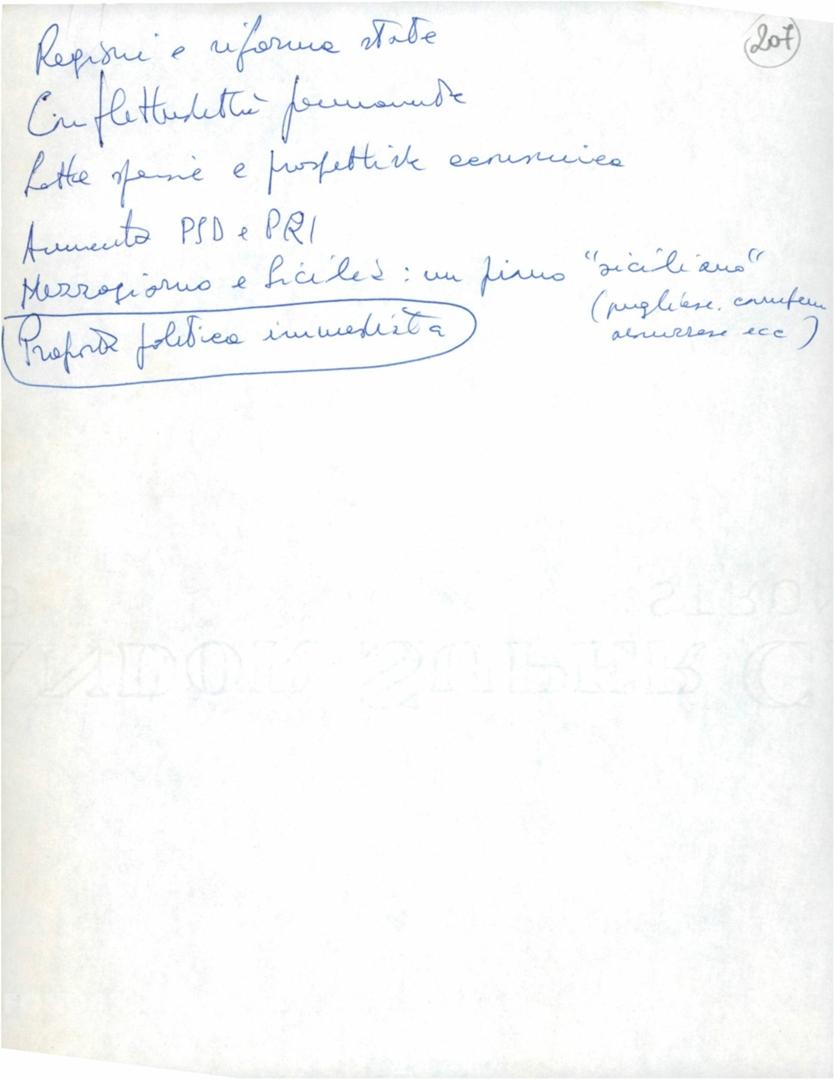 207
Regioni e riforma stato
Conflittualità permanente
Lotte operaie e prospettive economica
Aumento PSD e PRI
Mezzogiorno e Sicilia: un piano "siciliano"
(pugliese.
abruzzese ecc)
Proposta politica immediata